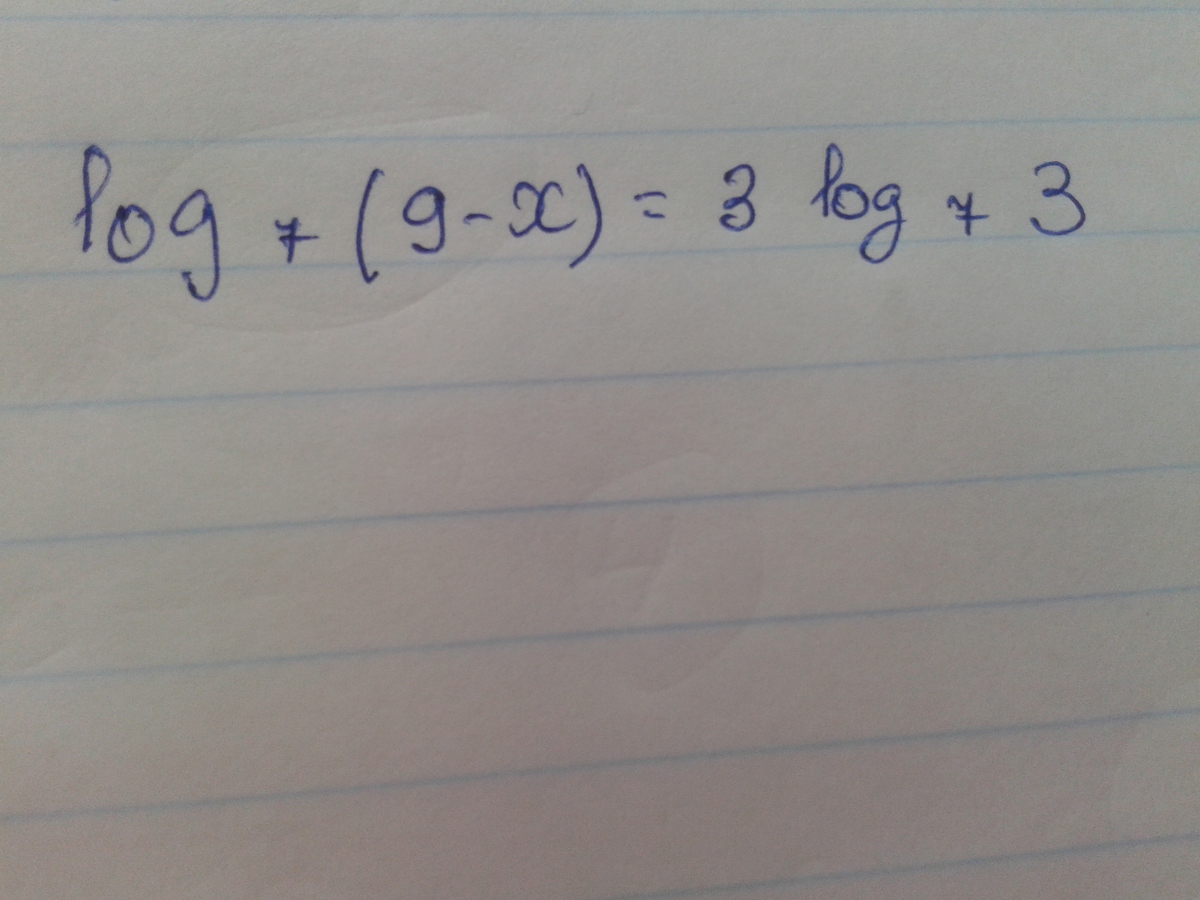 log₇(9-x)=3 log₇3